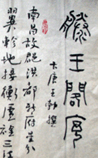 滕王閣序
大唐王勃撰
南昌故郡洪都新府星分
翼軫地接衡廬襟三江